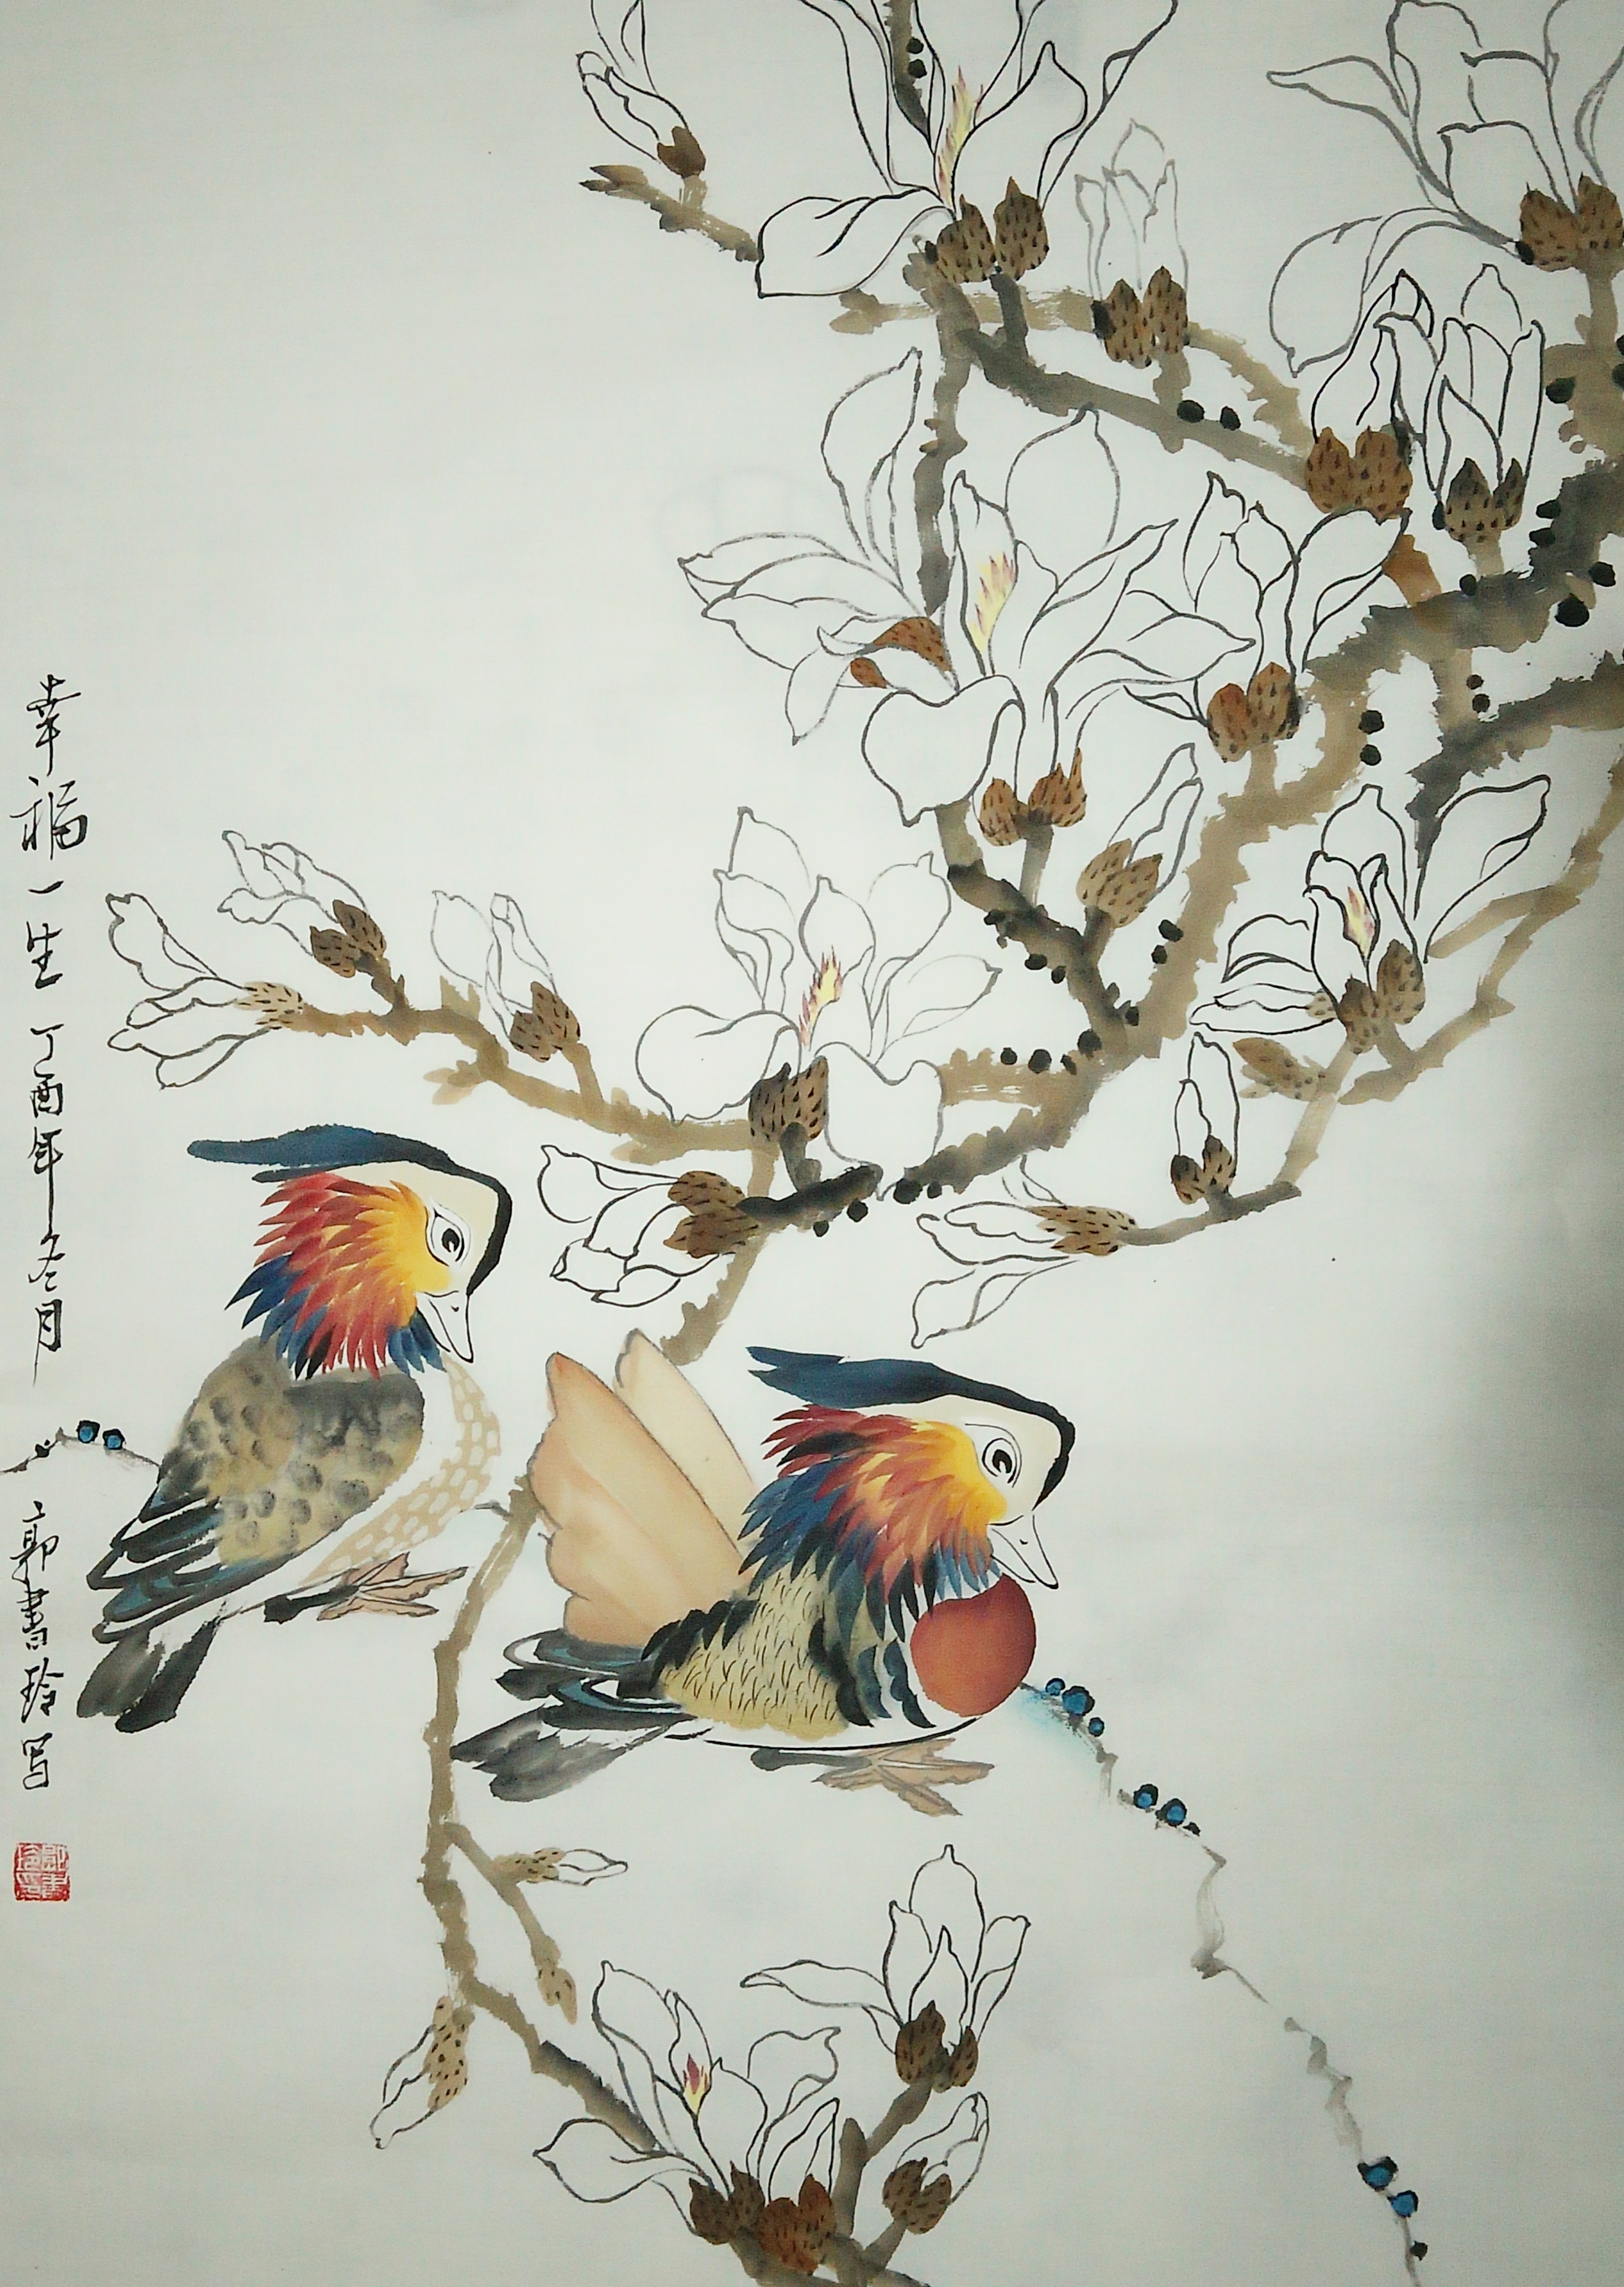 幸福一生 丁酉年冬月
郭書玲写